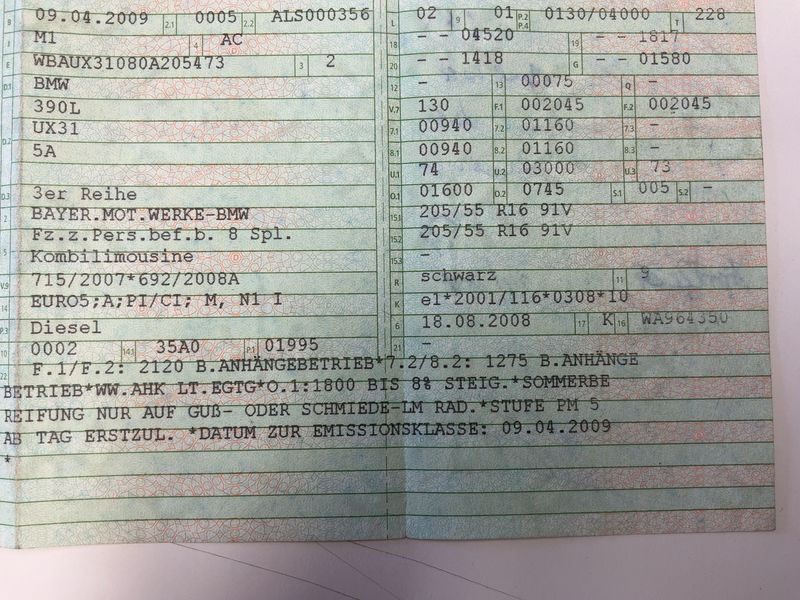 B 09.04.2009 2.1 0005 2.2 ALS000356
J M1 4 AC
E WBAUX31080A205473 3 2
D.1 BMW
390L
D.2 UX31
5A
D.3 3er Reihe
2 BAYER.MOT.WERKE-BMW
Fz.z.Pers.bef.b. 8 Spl.
5 Kombilimousine
V.9 715/2007*692/2008A
EURO5;A;PI/CI; M, N1 I
P.3 Diesel
10 0002 14.1 35A0 P.1 01995
L 02 9 01 P.2 P.4 0130/04000 T 228
18 - - 04520 19 - - 1817
20 - - 1418 G - - 01580
12 - 13 00075 Q -
V.7 130 F.1 002045 F.2 002045
7.1 00940 7.2 01160 7.3 -
8.1 00940 8.2 01160 8.3 -
U.1 74 U.2 03000 U.3 73
O.1 01600 O.2 0745 S.1 005 S.2 -
15.1 205/55 R16 91V
15.2 205/55 R16 91V
15.3 -
R schwarz 11 9
K e1*2001/116*0308*10
6 18.08.2008 17 K 16 WA964350
21 -
22 F.1/F.2: 2120 B.ANHÄNGEBETRIEB*7.2/8.2: 1275 B.ANHÄNGE
BETRIEB*WW.AHK LT.EGTG*O.1:1800 BIS 8% STEIG.*SOMMERBE
REIFUNG NUR AUF GUß- ODER SCHMIEDE-LM RAD.*STUFE PM 5
AB TAG ERSTZUL. *DATUM ZUR EMISSIONSKLASSE: 09.04.2009
*